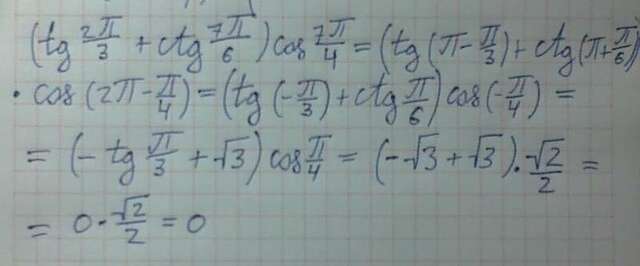 (tg 2π/3 + ctg 7π/6) cos 7π/4 = (tg (π - π/3) + ctg (π + π/6))
· cos (2π - π/4) = (tg (-π/3) + ctg π/6) cos (-π/4) =
= (- tg π/3 + √3) cos π/4 = (-√3 + √3) · √2/2 =
= 0 · √2/2 = 0